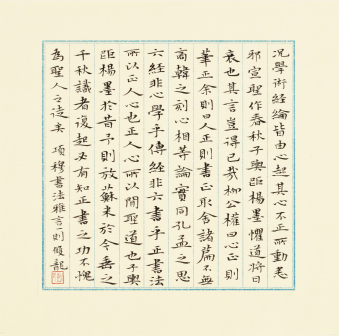 況學術經綸皆由心起其心不正所動悉
邪宣聖作春秋子輿距楊墨懼道將日
衰也其言豈得已哉柳公權曰心正則
筆正余則曰人正則書正取舍諸篇不無
商韓之刻心相等論實同孔孟之思
六經非心學乎傳經非六書乎正書法
所以正人心也正人心所以閑聖道也子輿
距楊墨於昔予則放蘇米於今垂之
千秋識者復起必有知正書之功不愧
為聖人之徒矣 項穆書法雅言一則